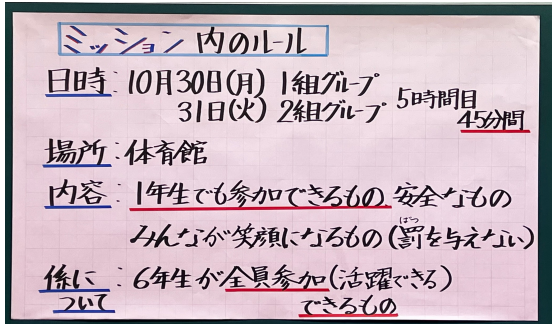 ミッション 内のルール
日時:10月30日(月) 1組グループ
31日(火) 2組グループ 5時間目
45分間
場所:体育館
内容:1年生でも参加できるもの 安全なもの
みんなが笑顔になるもの(罰を与えない)
ばつ
係に:6年生が全員参加(活躍できる)
ついて できるもの